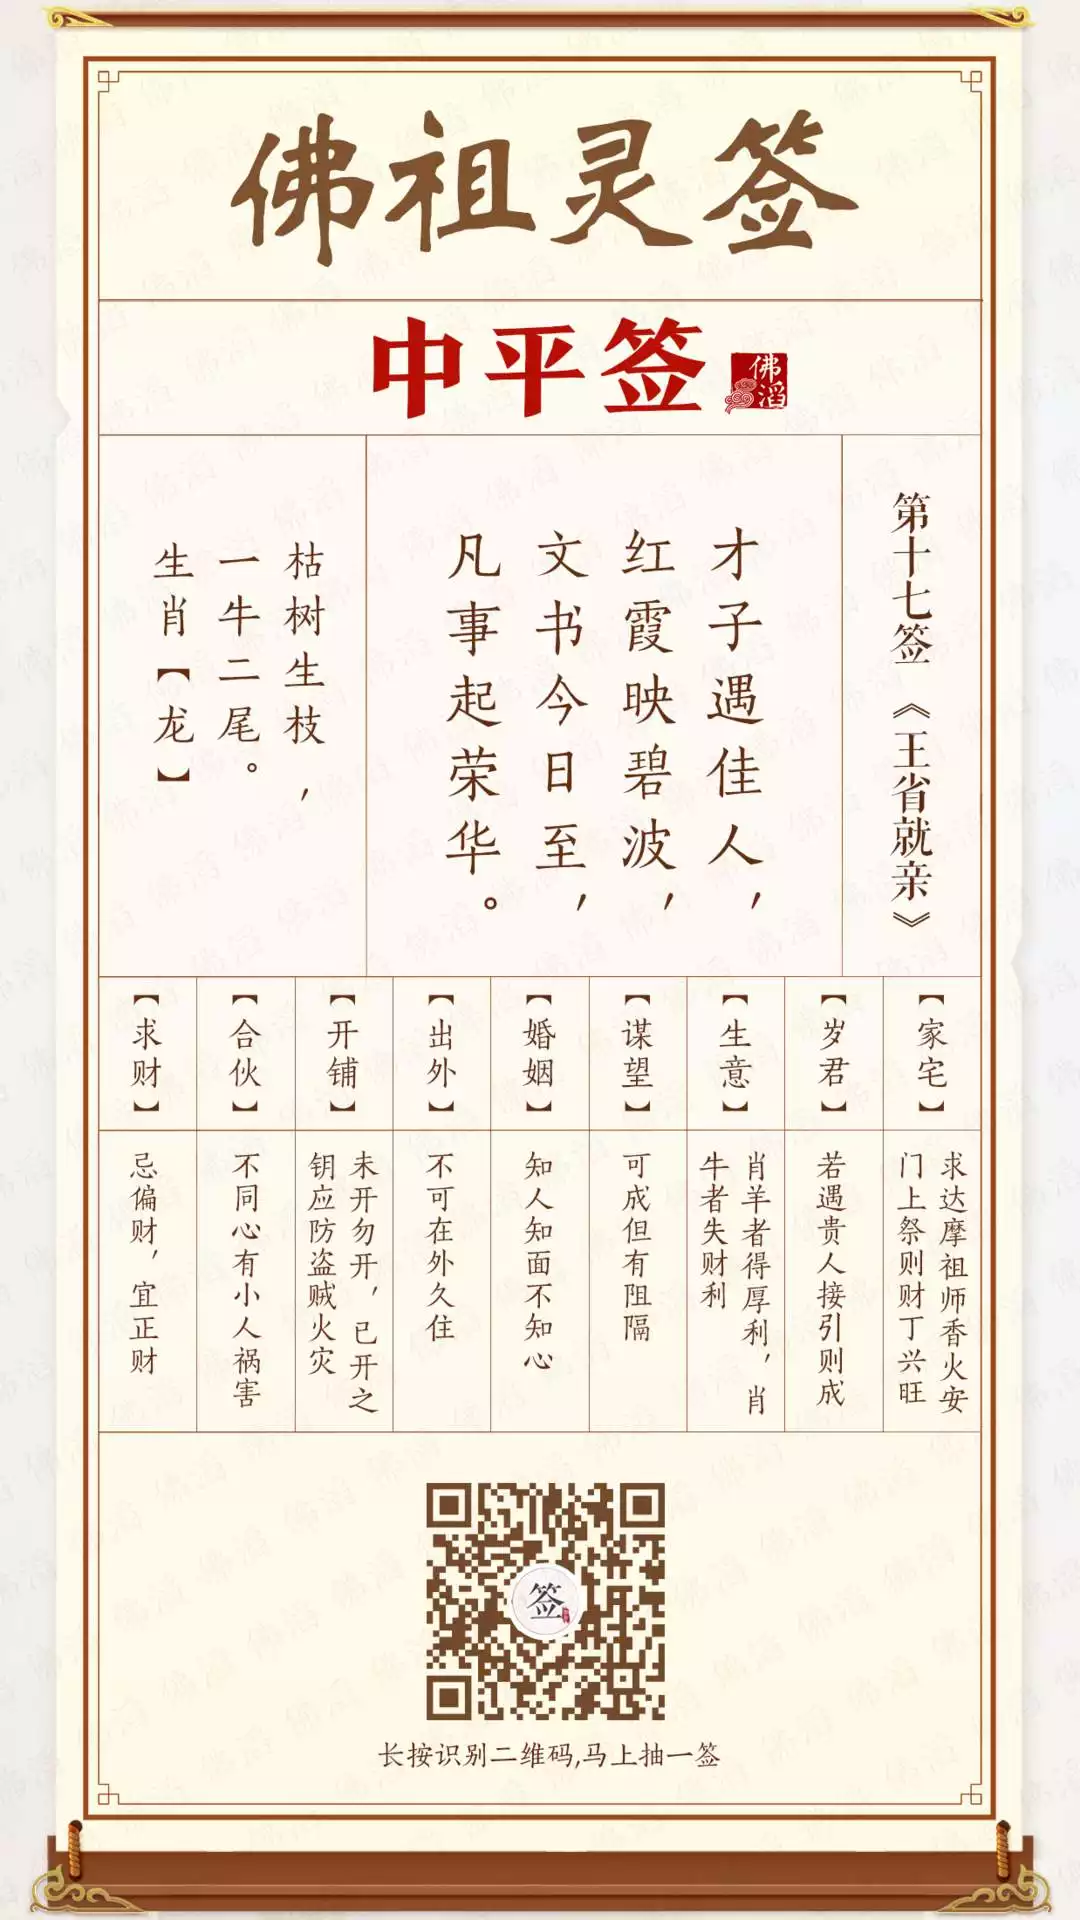 佛祖灵签
中平签
佛滔
第十七签《王省就亲》
才子遇佳人，
红霞映碧波，
文书今日至，
凡事起荣华。
枯树生枝，
一牛二尾。
生肖【龙】
【家宅】
求达摩祖师香火安
门上祭则财丁兴旺
【岁君】
若遇贵人接引则成
【生意】
肖羊者得厚利，肖
牛者失财利
【谋望】
可成但有阻隔
【婚姻】
知人知面不知心
【出外】
不可在外久住
【开铺】
未开勿开，已开之
钥应防盗贼火灾
【合伙】
不同心有小人祸害
【求财】
忌偏财，宜正财
签
长按识别二维码,马上抽一签